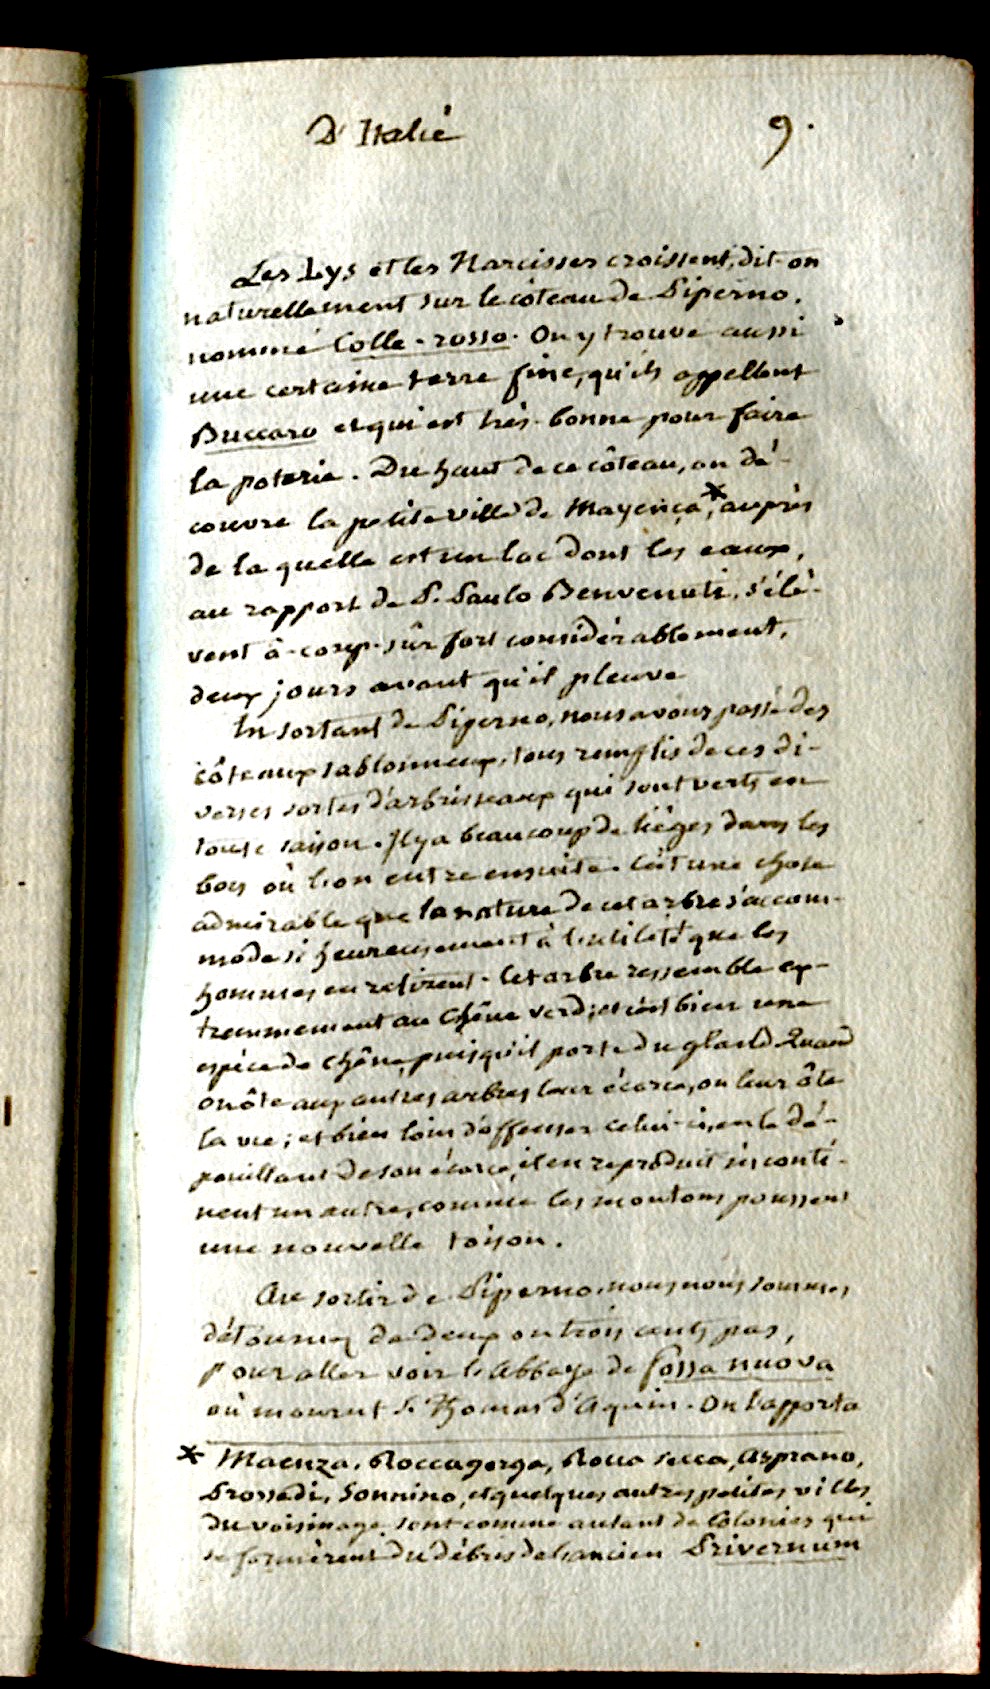 D'Italie 9.
Les Lys et les Narcisses croissent, dit-on
naturellement sur le côteau de Piperno,
nommé Colle-rosso. On y trouve aussi
une certaine terre fine, qu'ils appellent
Buccaro et qui est très-bonne pour faire
la poterie. Du haut de ce côteau, on dé-
couvre la petite ville de Mayença*, auprès
de laquelle est un lac dont les eaux,
au rapport de P. Paulo Benvenuti, s'élè-
vent à-coup-sûr fort considérablement,
deux jours avant qu'il pleuve
En sortant de Piperno, nous avons passé des
côteaux sablonneux, tous remplis de ces di-
verses sortes d'arbrisseaux qui sont verts en
toute saison. Il y a beaucoup de lièges dans les
bois où l'on entre ensuite. C'est une chose
admirable que la nature de cet arbre s'accom-
mode si heureusement à l'utilité que les
hommes en retirent. Cet arbre ressemble ex-
trêmement au chêne verd; et c'est bien une
espèce de chêne, puisqu'il porte du gland. Quand
on ôte aux autres arbres leur écorce, on leur ôte
la vie; et bien loin d'offenser celui-ci, en le dé-
pouillant de son écorce, il en reproduit incontì-
nent un autre, comme les moutons poussent
une nouvelle toison.
Au sortir de Piperno, nous nous sommes
détournez de deux ou trois cents pas,
pour aller voir l'Abbaye de fossa nuova
où mourut S. Thomas d'Aquin. On l'apporta
* Maenza, Roccagorga, Rocca secca, Asprano,
Prossedi, Sonnino, et quelques autres petites villes
du voisinage sont comme autant de Colonies qui
se formèrent du débris de l'ancien Privernum